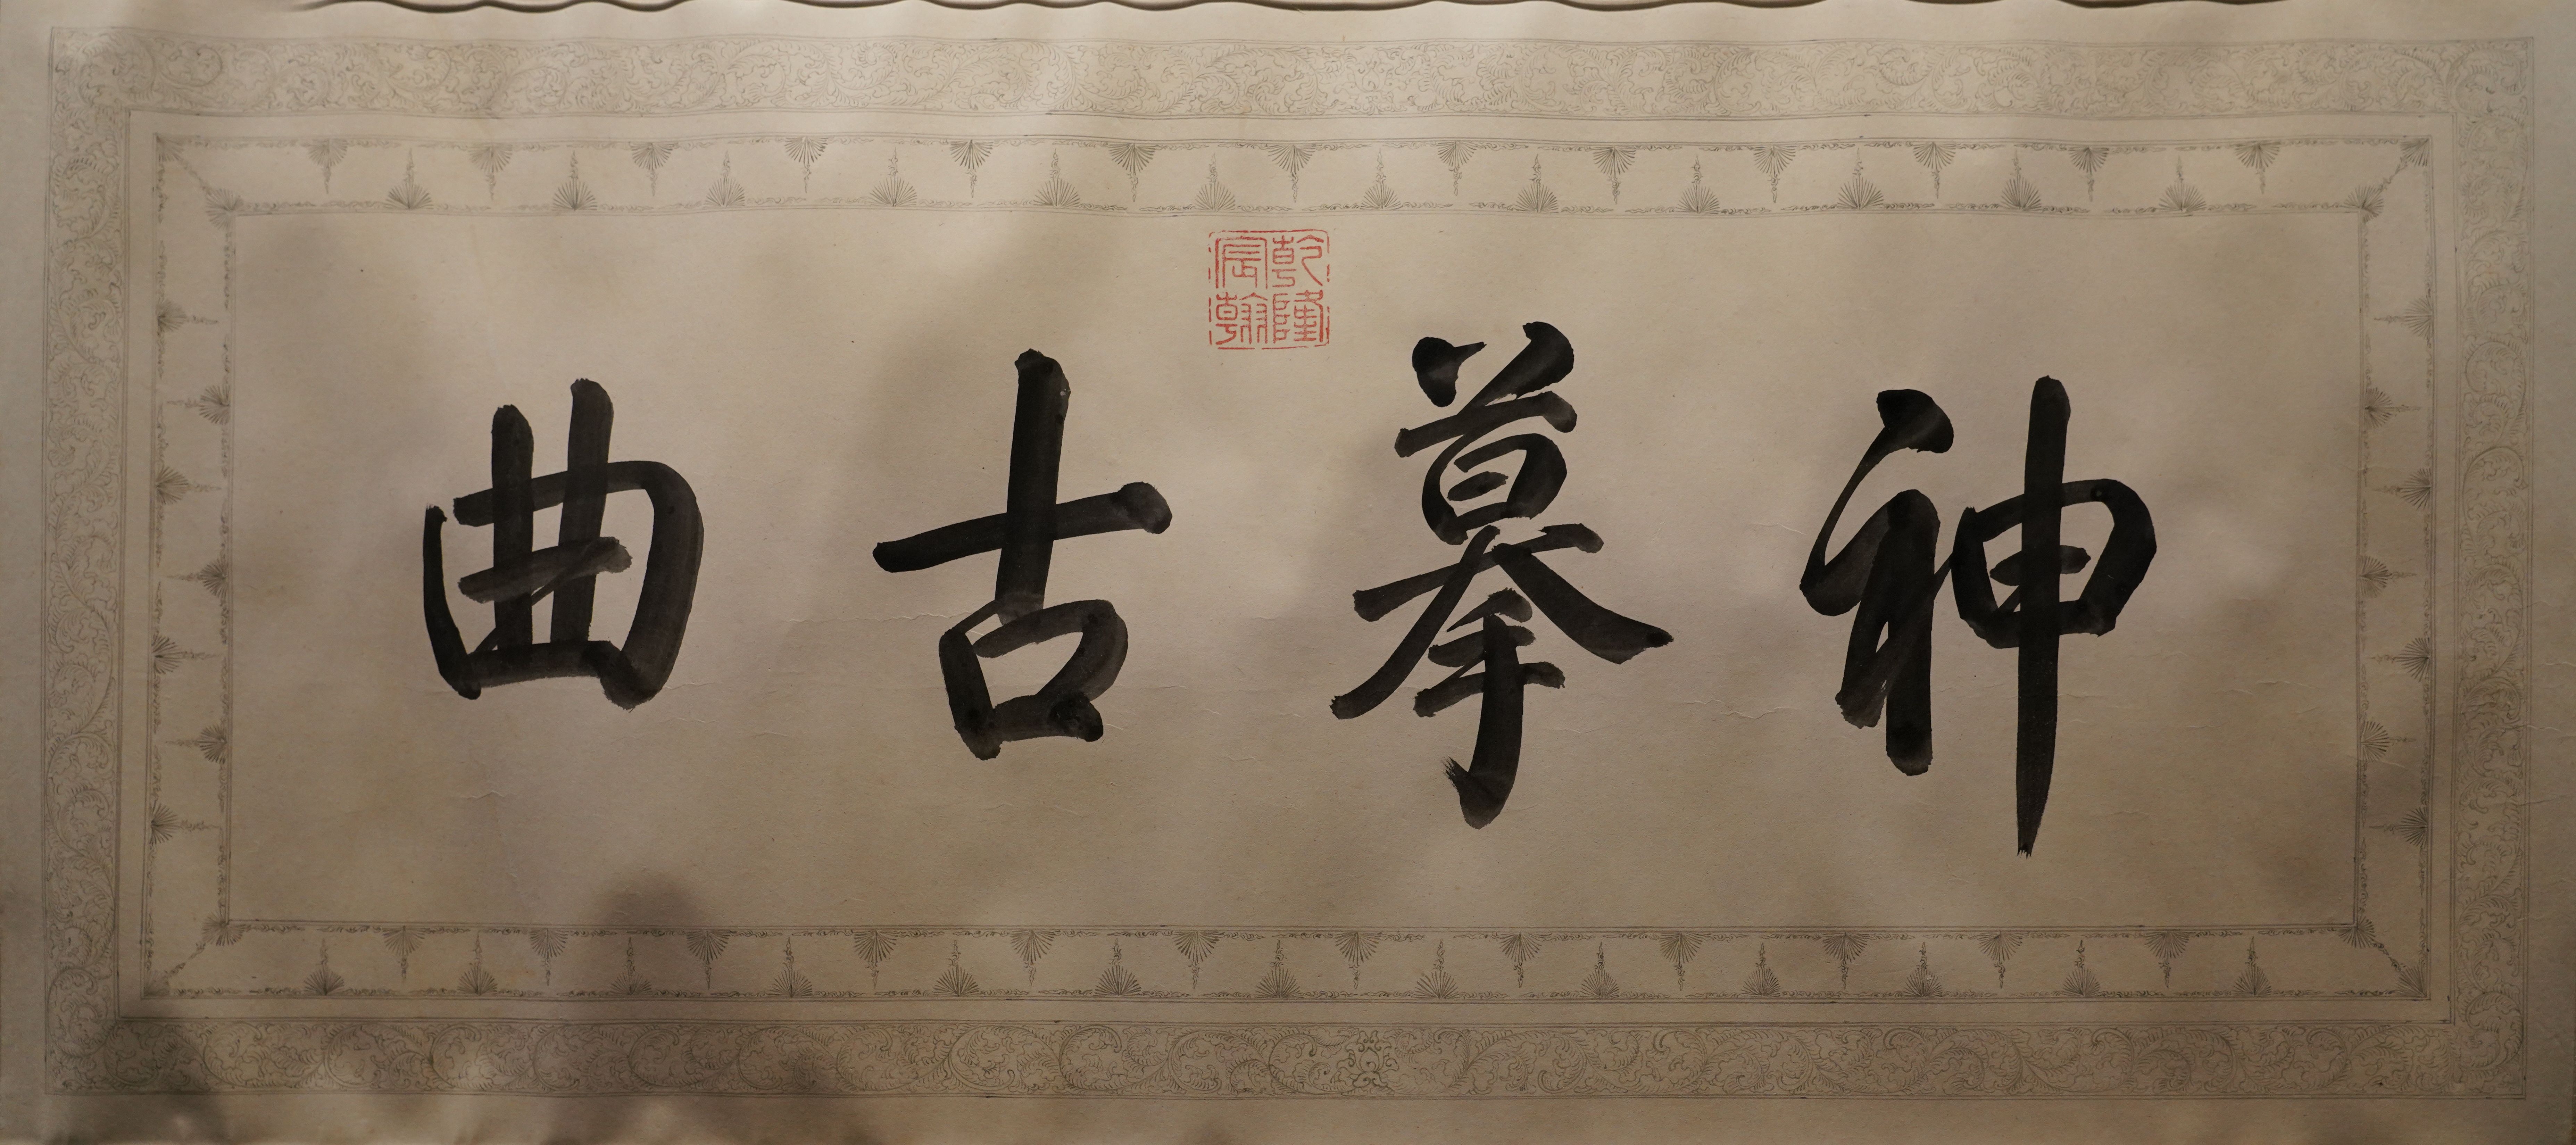 乾隆宸翰
神摹古曲